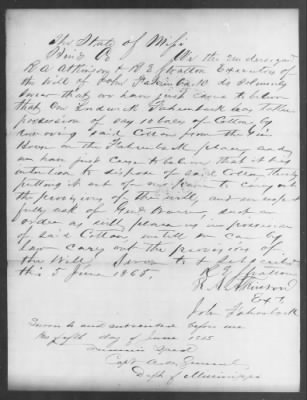 The State of Miss
Hinds Co We the undersigned
R A Atkinson & R E Stratton Executors of
the will of John Fahrenback do solemnly
swear that we have just cause to believe
that One Ludwick Fahrenback has taken
possession of say 10 bales of Cotton, by
removing said Cotton from the Gin
House on the Fahrenback place, and
we have just cause to believe that it his
intention to dispose of said Cotton thereby
putting it out of our power to carry out
the provisions of the will, and we respect
fully ask of Genl such an
order as will place us in possession
of said Cotton untill we can by
law carry out the provisions of
the Will. Sworn to & subscribed
this 5 June 1865.
R E Stratton
R A Atkinson
Exts
John Fahrenback
Sworn to and subscribed before me
the fifth day of June 1865
Capt &
Dept of Mississippi